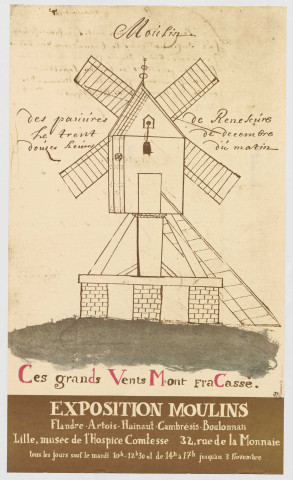 Moulin
des pauures de Renescure
Le trent de decembre
douzes heures du matin
Ces grands Vents Mont FraCassé.
EXPOSITION MOULINS
Flandre - Artois - Hainaut - Cambrésis - Boulonnais
Lille, musée de l'Hospice Comtesse 32, rue de la Monnaie
tous les jours sauf le mardi 10h-12h30 et de 14h à 17h jusqu'au 3 Novembre